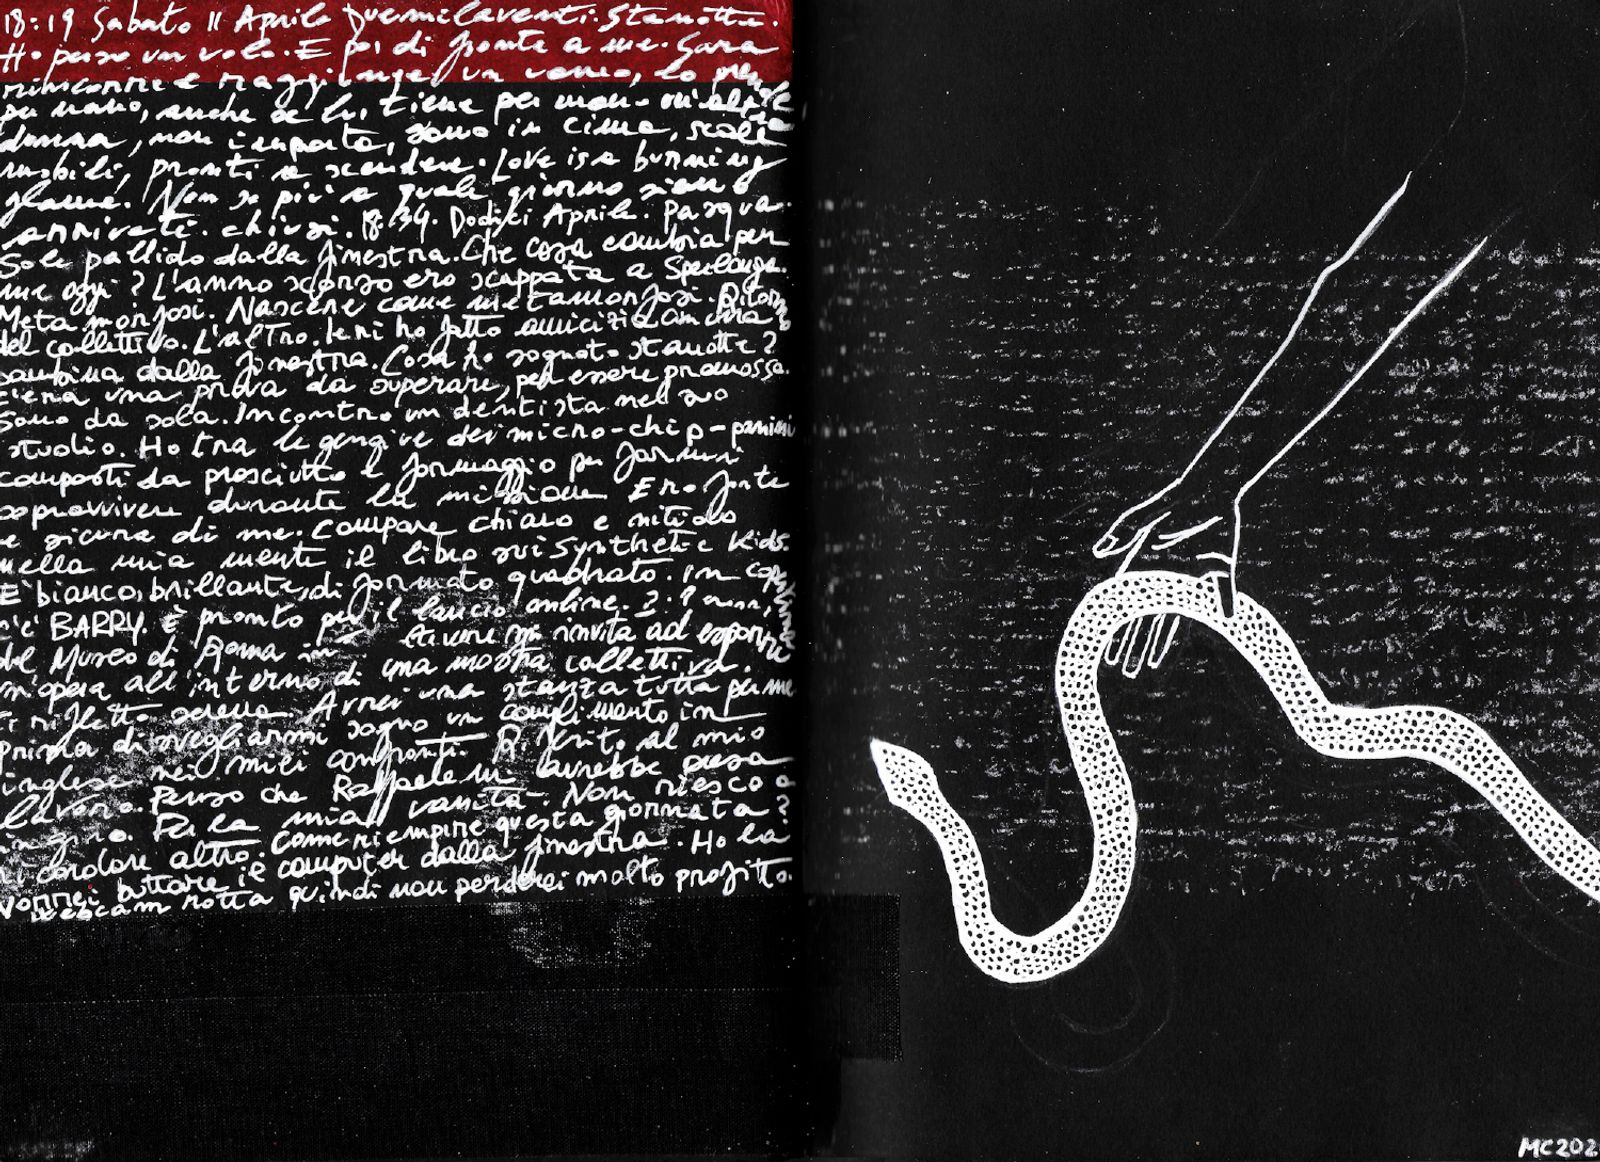 18:19 Sabato 11 Aprile Duemilaventi. Stanotte.
Ho perso un volo. E poi di fronte a me. Sara
rincorre e raggiunge un uomo, lo prende
per mano, anche se lui tiene per mano un'altra
donna, non importa, sono in cima, scale
mobili, pronti a scendere. Love is a burning
flame. Non so più a quale giorno siamo
arrivati. chiusi. 18:34. Dodici Aprile. Pasqua.
Sole pallido dalla finestra. Che cosa cambia per
me oggi? L'anno scorso ero scappata a Sperlonga.
Metamorfosi. Nascere come metamorfosi. Ritorno
del collettivo. L'altro. Ieri ho fatto amicizia con una
bambina dalla finestra. Cosa ho sognato stanotte?
C'era una prova da superare, per essere promossa.
Sono da sola. Incontro un dentista nel suo
studio. Ho tra le gengive dei micro-chip-panini
composti da prosciutto e formaggio per farmi
sopravvivere durante la missione. Ero forte
e sicura di me. Compare chiaro e nitido
nella mia mente il libro sui Synthetic Kids.
È bianco, brillante, di formato quadrato. In copertina
c'è BARRY. È pronto per il lancio online.
del Museo di Roma in mi invita ad esporre
un'opera all'interno di una mostra collettiva.
Ci rifletto serena. Avrei una stanza tutta per me
prima di svegliarmi sogno un complimento in
inglese nei miei confronti. Riferito al mio
lavoro. Penso che Raffaele mi avrebbe presa
in giro. Per la mia vanità. Non riesco a
ricordare altro. Come riempire questa giornata?
Vorrei buttare il computer dalla finestra. Ho la
webcam rotta quindi non perderei molto profitto.
MC202